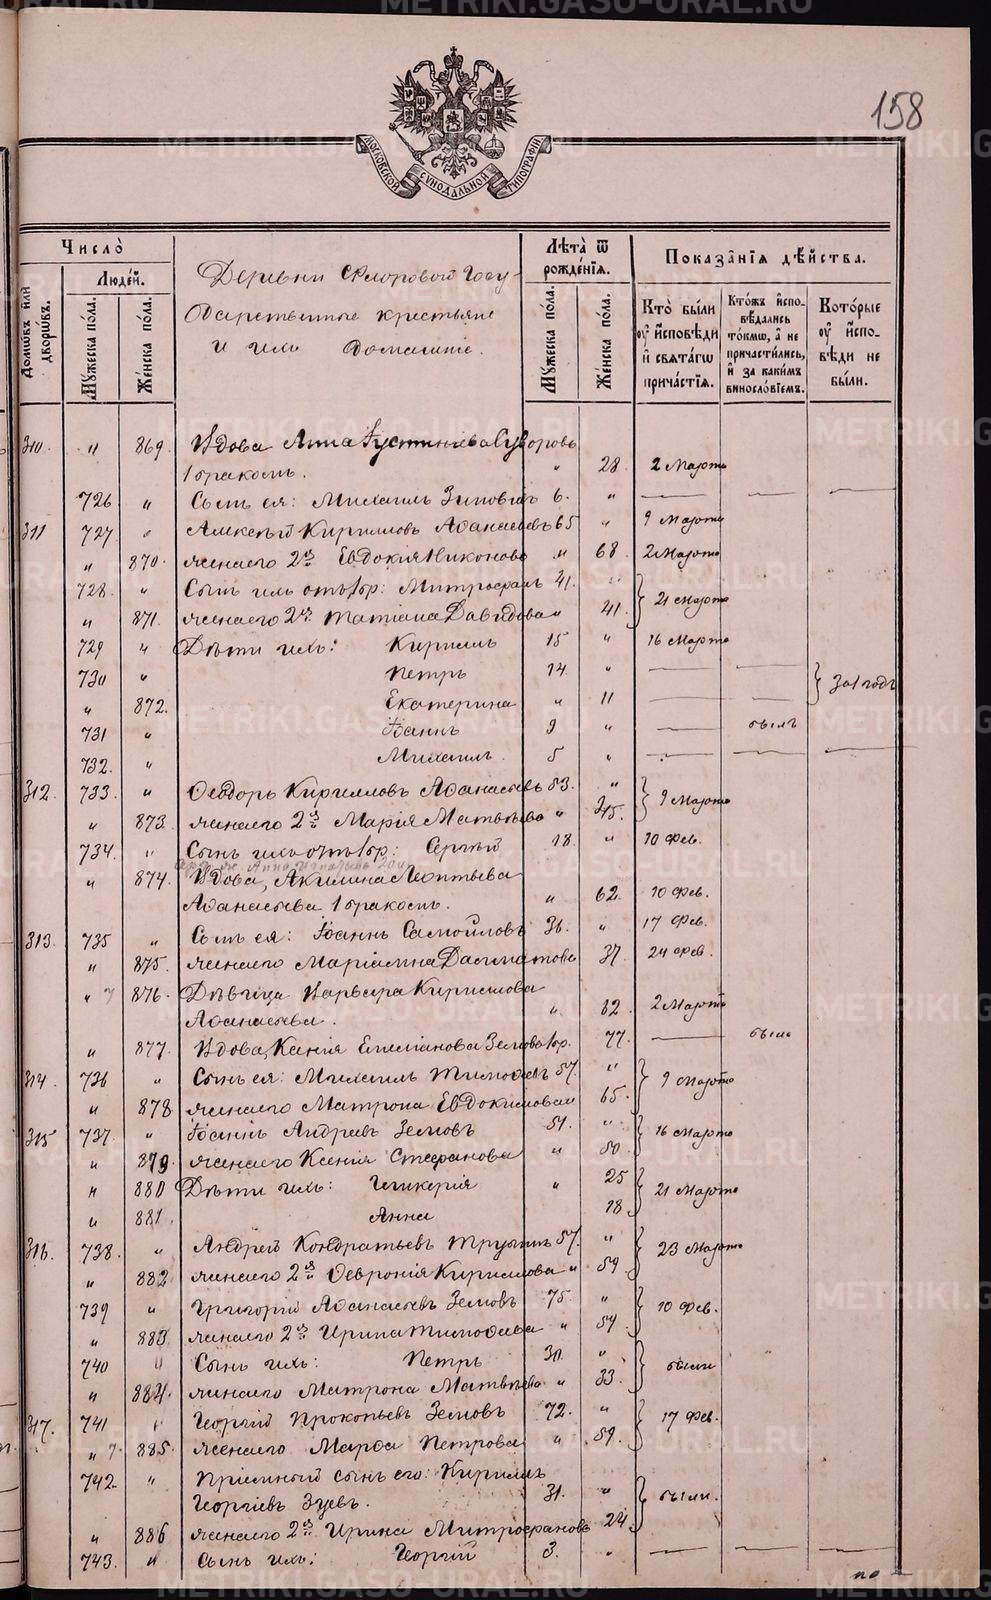 METRIKI.GASO-URAL.RU
158
МОСКОВСКОЙ СѴНОДАЛЬНОЙ ТИПОГРАФІИ
Число̀
Домѡвъ и҆лѝ дворѡвъ.
Люде́й.
Мꙋ́жеска по́ла.
Же́нска по́ла.
Деревни Флоровой Госу-
дарственные крестьяне
и ихъ домашніе.
Лѣ́та ѿ рожде́нїѧ.
Мꙋ́жеска по́ла.
Же́нска по́ла.
Показа̑нїѧ дѣ́йства.
Кто̀ бы́ли ᲂу҆ и҆́сповѣди и҆ свѧта́гѡ прича́стїѧ.
Кто́жъ и҆спо- вѣ́дались то́кмѡ, а҆ не причасти́лись, и҆ за каки́мъ винослове́мъ.
Кото́рые ᲂу҆ и҆́спо- вѣди не бы́ли.
310 " 869. Вдова Анна Іустиніева Суворовъ
1 бракомъ. " 28. 2 Марта
726 " Сынъ ея: Михаилъ Зиновіевъ 6. "
311 727. " Алексѣй Кирилловъ Аѳанасьевъ 65 " 9 Марта
" 870. жена его 2ья Евдокія Никонова " 68. 2 Марта
728. " Сынъ ихъ отъ 1 бр: Митрофанъ 41. " 21 Марта
" 871. жена его 2ья Татіана Давидова " 41.
729 " Дѣти ихъ: Кириллъ 15 " 16 Марта
730 " Петръ 14. " за 1 годъ
" 872. Екатерина " 11
731 " Іоаннъ 9 " былъ
732. " Михаилъ. 5 "
312. 733. " Ѳеодоръ Кирилловъ Аѳанасьевъ 53. " 9 Марта
" 873. жена его 2я Марія Матвѣева " 45.
734. " Сынъ ихъ отъ 1 бр: Сергѣй 18. " 10 Фев.
" 874. Вдова, Акилина Леонтьева
Аѳанасьева 1 бракомъ. " 62. 10 Фев.
313. 735 " Сынъ ея: Іоаннъ Самойловъ 36. " 17 Фев.
" 875. жена его Маріамна Далматова 37. 24 Фев.
" 876. Дѣвица Варвара Кириллова
Аѳанасьева. " 82. 2 Марта
" 877. Вдова, Ксенія Емеліанова Земова 1 бр. 77. были
314. 736 " Сынъ ея: Михаилъ Тимоѳеевъ 57. " 9 Марта
" 878 жена его Матрона Евдокимова 65.
315 737. " Іоаннъ Андреевъ Земовъ 51. " 16 Марта
" 879. жена его Ксенія Стефанова " 50.
" 880 Дѣти ихъ: Гликерія " 25 21 Марта
" 881. Анна 18.
316. 738. " Андрей Кондратьевъ Трусихинъ 57. " 23 Марта
" 882 жена его 2я Ѳевронія Кириллова " 59.
739 " Григорій Аѳанасьевъ Земовъ 75. " 10 Фев.
" 883. жена его 2я Ирина Тимоѳеева " 54.
740 Сынъ ихъ: Петръ 30. " были
" 884. жена его Матрона Матвѣева " 33.
317. 741 Георгій Прокопьевъ Земовъ 72. " 17 Фев.
" 885. жена его Марѳа Петрова " 59.
742. " Пріемный сынъ его: Кириллъ
Георгіевъ Зуевъ. 31. " были.
" 886 жена его 2я Ирина Митрофанова 24.
743. " Сынъ ихъ: Георгій 3. "